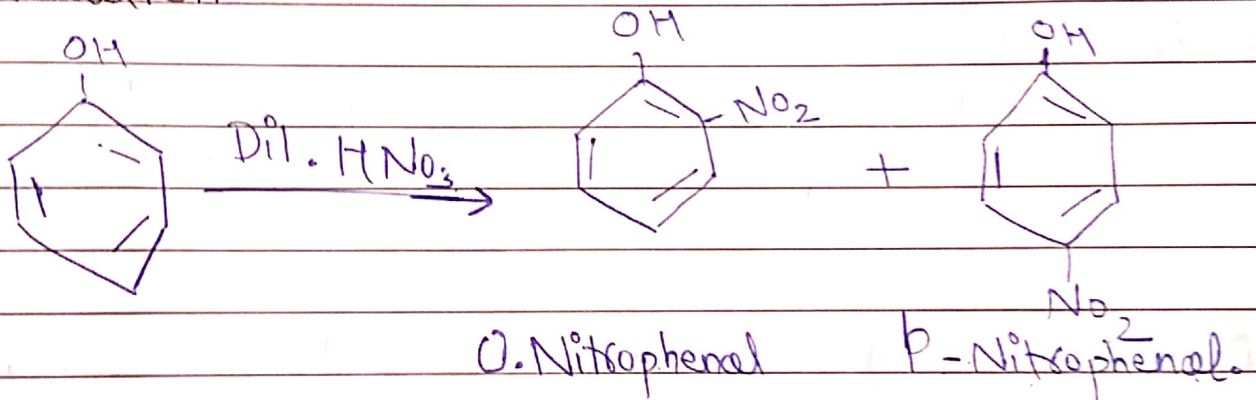 OH
Dil. HNO3
OH
NO2
+
OH
NO2
O.Nitrophenol
p-Nitrophenol.